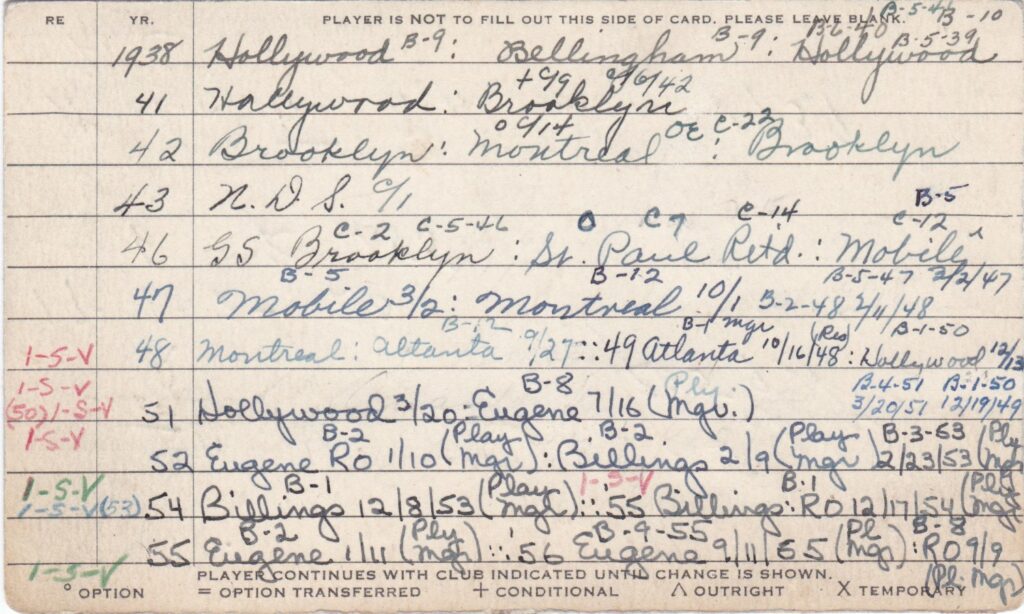 RE YR. PLAYER IS NOT TO FILL OUT THIS SIDE OF CARD. PLEASE LEAVE BLANK. B-5-46 B-10
B-9 B-9 B-6-40 B-5-39
1938 Hollywood : Bellingham : Hollywood
+C/9 9/6/42
41 Hollywood : Brooklyn
O C/14 OE C-22
42 Brooklyn : Montreal : Brooklyn
43 N.D.S. C/1 B-5
C-2 C-5-46 O C7 C-14 C-12
46 GS Brooklyn : St. Paul Retd. : Mobile
B-5 B-12 B-5-47 3/2/47
47 Mobile 3/2 : Montreal 10/1 B-2-48 2/11/48
B-12 B-1 mgr (Res) B-1-50
1-S-V 48 Montreal : Altanta 9/27 :: 49 Atlanta 10/16/48 : Hollywood 12/13
1-S-V B-8 Ply. B-4-51 B-1-50
(50) 1-S-V 51 Hollywood 3/20 : Eugene 7/16 (Mgr.) 3/20/51 12/19/49
1-S-V B-2 (Play B-2 (Play B-3-53 (Ply
52 Eugene RO 1/10 (Mgr) : Billings 2/9 (Mgr) 2/23/53 (Mgr)
1-S-V B-1 (Play 1-S-V B-1 (Ply
1-S-V (53) 54 Billings 12/8/53 (Mgr) :: '55 Billings : RO 12/17/54 (Mgr)
B-2 (Ply B-9-55 (Pl B-8
55 Eugene 1/11 (Mgr) :: '56 Eugene 9/11/55 (Mgr) : RO 9/9
1-S-V PLAYER CONTINUES WITH CLUB INDICATED UNTIL CHANGE IS SHOWN. (Pl. Mgr)
° OPTION = OPTION TRANSFERRED + CONDITIONAL Λ OUTRIGHT X TEMPORARY